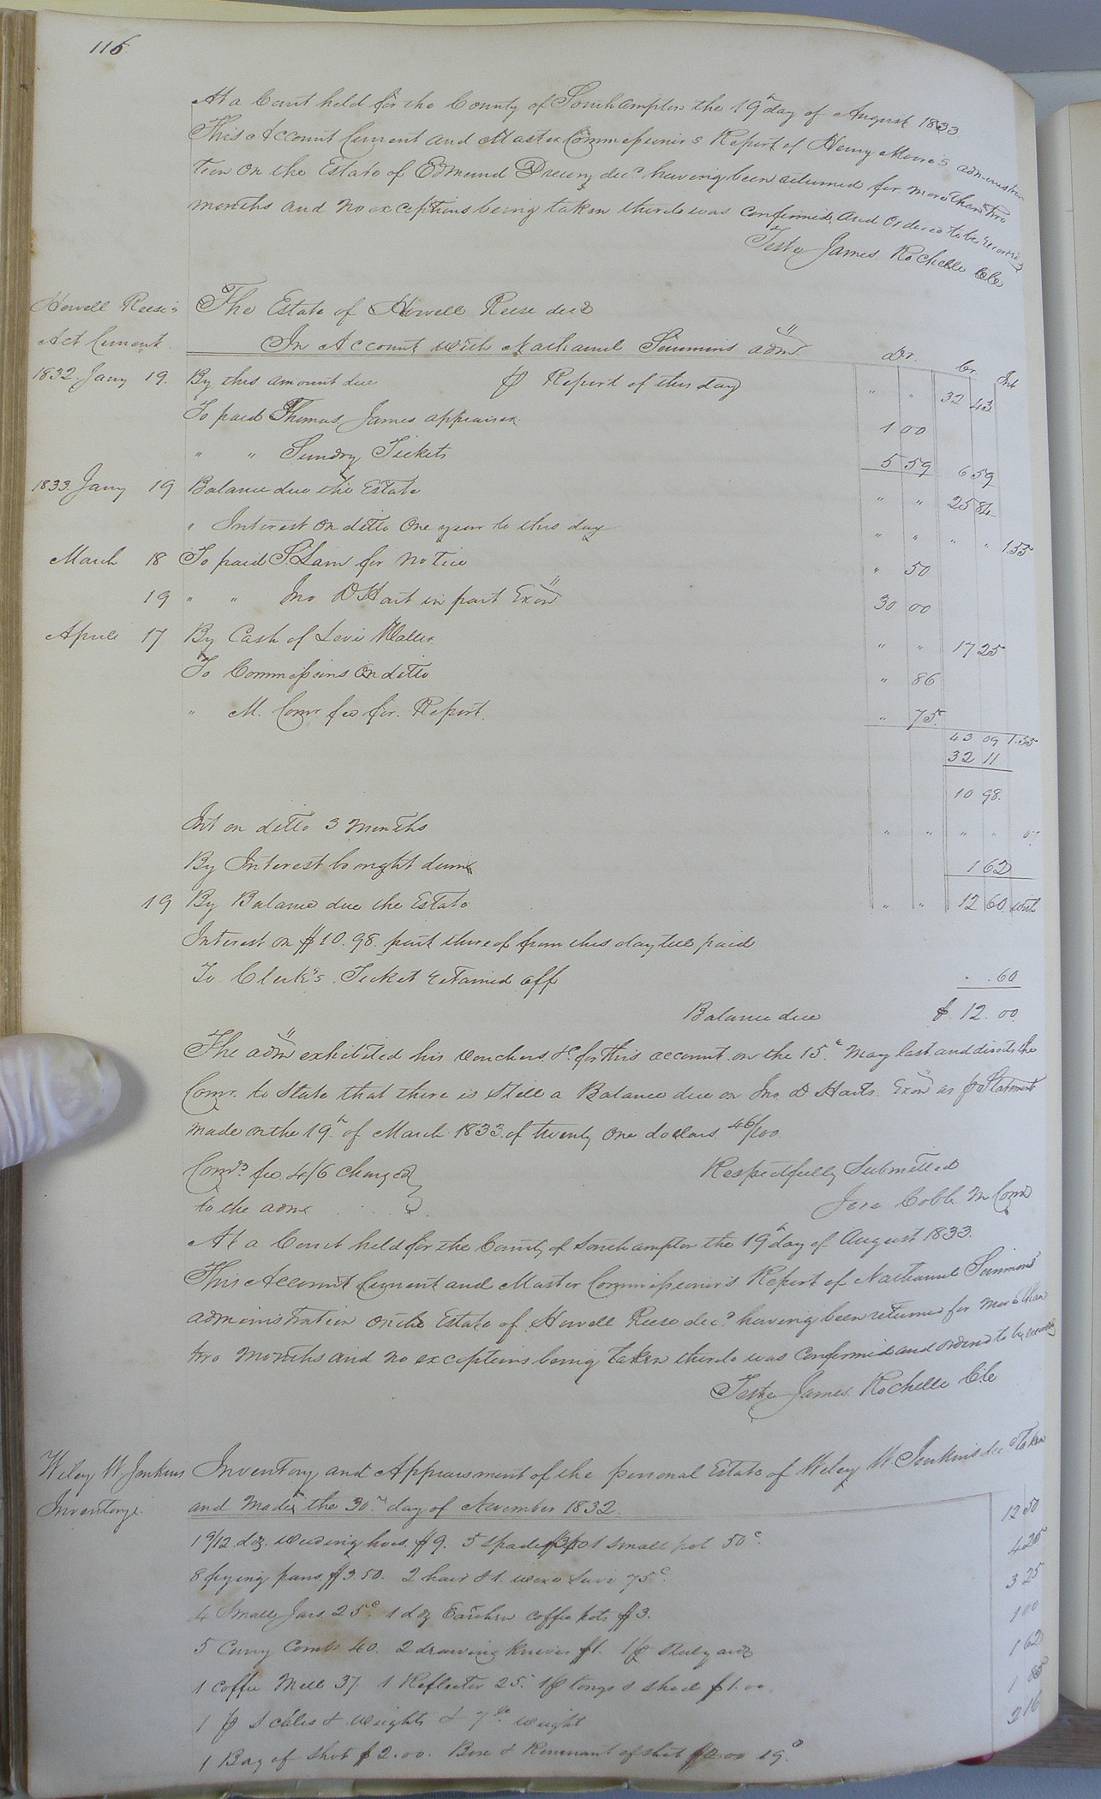 116
At a Court held for the County of Southampton the 19th day of August 1833
This Account Current and Master Commissioner's Report of Henry Moore's administra
tion on the Estate of Edmund Drewry decd having been returned for more than two
months and no exceptions being taken thereto was confirmed and Ordered to be recorded
Teste James Rochelle Clc
Howell Reese's The Estate of Howell Reese decd
Act Current In Account with Nathaniel Simmons adm
Dr. Cr. Int
1832 Jany 19. By this amount due ⅌ Report of this day " " 32 43
To paid Thomas James appraiser 1 00
" " Sundry Tickets 5 59 6 59
1833 Jany 19 Balance due the Estate " " 25 84
" Interest on ditto one year to this day " " " " 1.55
March 18 To paid S Law for notice " 50
19 " " Jno D Hart in part Exon 30 00
April 17 By Cash of Levi Waller " " 17 25
To Commissions on ditto " 86
" M. Comr fee for Report. " 75
43 09 1.55
32 11
10 98.
Int on ditto 3 months " " " " 07
By Interest brought down 1 62
19 By Balance due the Estate " " 12 60 with
Interest on $10.98 part thereof from this day till paid
To Clerk's Ticket retained off . .60
Balance due $ 12.00
The adm exhibited his vouchers &c for this account on the 15th May last and directs the
Comr. to State that there is Still a Balance due on Jno D Harts Exon as ⅌ Statement
made on the 19th of March 1833 of twenty one dollars 46/100
Comrs fee 4/6 charged Respectfully Submitted
to the adm Jere Cobb M Comr
At a Court held for the County of Southampton the 19th day of August 1833.
This Account Current and Master Commissioner's Report of Nathaniel Simmons'
administration on the Estate of Howell Reese decd having been returned for more than
two months and no exceptions being taken thereto was Confirmed and ordered to be recorded
Teste James Rochelle Clc
Wiley W Jenkins Inventory and Appraisment of the personal Estate of Wiley W Jenkins decd taken
Inventory. and made the 30th day of November 1832.
1 9/12 dz weeding hoes $9. 5 spades 1 small pot 50c. 12 50
8 frying pans $3 50. 2 hair & 1 wire Sive 75c. 4 25
4 Small Jars 25c 1 dz Earthen coffee pots $3. 3 25
5 Curry Combs 40. 2 drawing knives $1. 1 00
1 Coffee Mill 37 1 Reflector 25 1 ⅌ tongs & shovel $1.00. 1 62
1 ⅌ Scales & weights & 7lb weight
1 Bag of Shot $2.00. Box & Remnant of shot